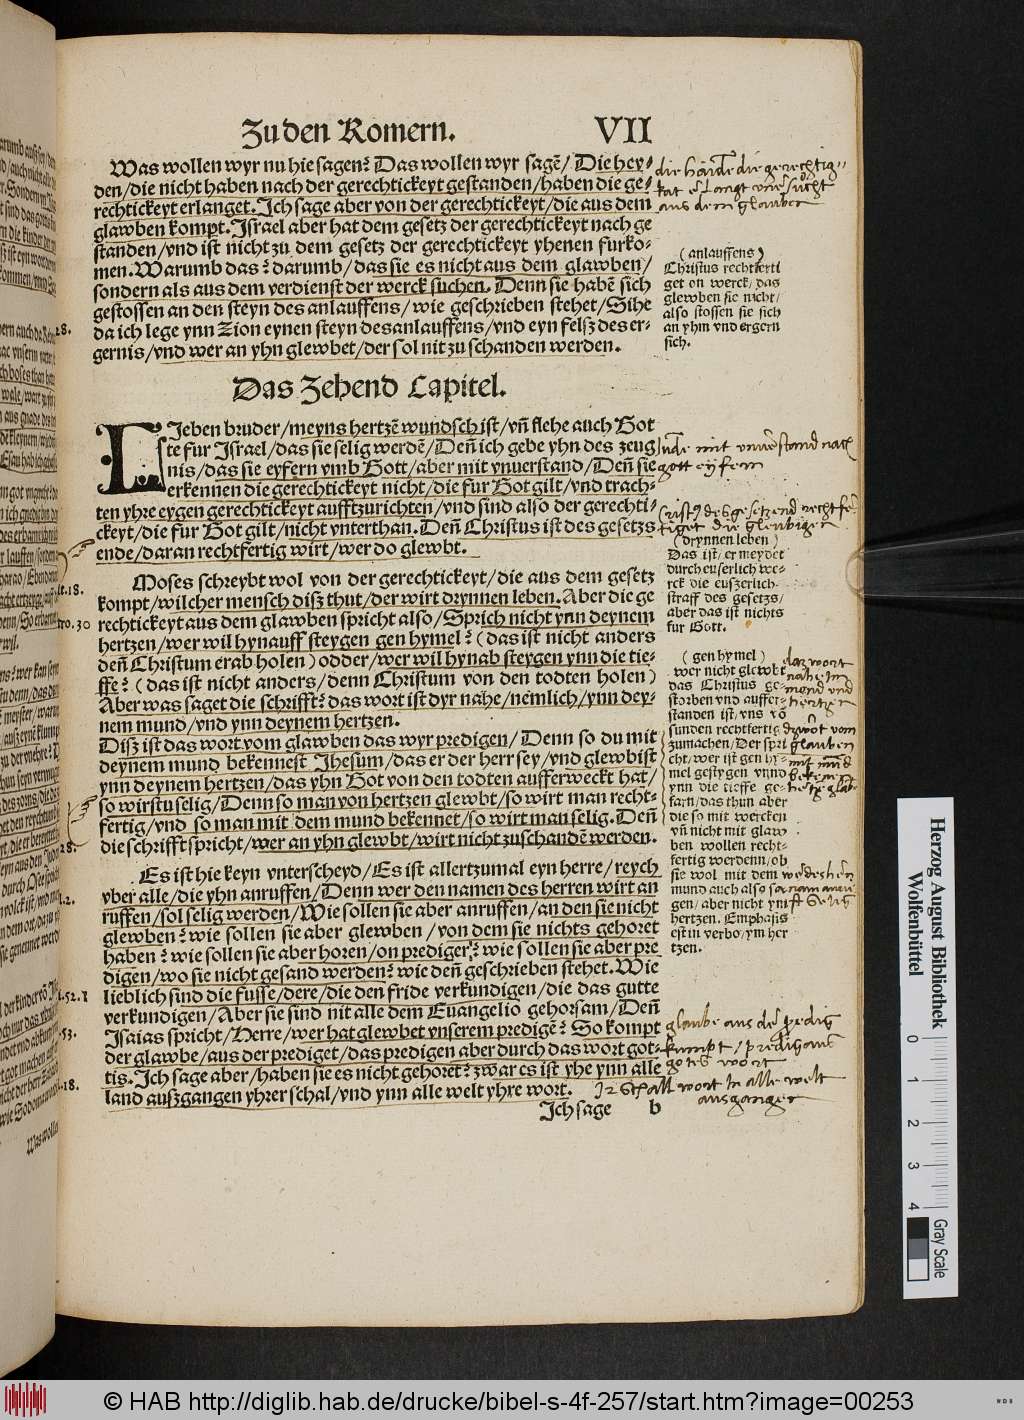 Zu den Romern. VII
Was wollen wyr nu hie sagen? Das wollen wyr sagẽ/ Die hey-
den/die nicht haben nach der gerechtickeyt gestanden/haben die ge-
rechtickeyt erlanget. Ich sage aber von der gerechtickeyt/die aus dem
glawben kompt. Israel aber hat dem gesetz der gerechtickeyt nach ge
standen/vnd ist nicht zu dem gesetz der gerechtickeyt yhenen furko-
men. Warumb das? darumb/das sie es nicht aus dem glawben/
sondern als aus dem verdienst der werck suchen. Denn sie habẽ sich
gestossen an den steyn des anlauffens/wie geschrieben stehet/Sihe
da ich lege ynn Zion eynen steyn des anlauffens/vnd eyn felsz des er-
gernis/vnd wer an yhn glewbet/der sol nit zu schanden werden.
die gerechtig
aus dem glauben
(anlauffens)
Christus rechtferti
get on werck/das
glewben sie nicht/
also stossen sie sich
an yhm vnd ergern
sich.
28.
Das Zehend Capitel.
LIeben bruder/meyns hertzẽ wundsch ist/vñ flehe auch Got
te fur Israel/das sie selig werdẽ/Deñ ich gebe yhn des zeug
nis/das sie eyfern vmb Gott/aber mit vnuerstand/Deñ sie
erkennen die gerechtickeyt nicht/die fur Got gilt/vnd trach-
ten yhre eygen gerechtickeyt aufftzurichten/vnd sind also der gerechti-
ckeyt/die fur Got gilt/nicht vnterthan. Deñ Christus ist des gesetzs
ende/daran rechtfertig wirt/wer do glewbt.
gott eyfern
die gleubigen
(drynnen leben)
Das ist/er meydet
durch euserlich we-
rck die euszerlich
straff des gesetzs/
aber das ist nichts
fur Gott.
Moses schreybt wol von der gerechtickeyt/die aus dem gesetz
kompt/wilcher mensch disz thut/der wirt drynnen leben. Aber die ge
rechtickeyt aus dem glawben spricht also/Sprich nicht ynn deynem
hertzen/wer wil hynauff steygen gen hymel? (das ist nicht anders
deñ Christum erab holen) odder/wer wil hynab steygen ynn die tie-
ffe? (das ist nicht anders/denn Christum von den todten holen)
Aber was saget die schrifft? das wort ist dyr nahe/nẽmlich/ynn dey-
nem mund/vnd ynn deynem hertzen.
18.
30
Disz ist das wort vom glawben das wyr predigen/Denn so du mit
deynem mund bekennest Jhesum/das er der herr sey/vnd glewbist
ynn deynem hertzen/das yhn Got von den todten aufferweckt hat/
so wirstu selig/Denn so man von hertzen glewbt/so wirt man recht-
fertig/vnd so man mit dem mund bekennet/so wirt man selig. Deñ
die schrifft spricht/wer an yhn glewbt/wirt nicht zuschanden werden.
28.
(gen hymel)
wer nicht glewbt
das Christus ge-
storben vnd auffer-
standen ist/vns võ
sunden rechtfertig
zumachen/Der spri
cht/wer ist gen hy-
mel gestygen vnnd
ynn die tieffe ge-
farn/das thun aber
die so mit wercken
vñ nicht mit glaw
ben wollen recht-
fertig werdenn/ob
sie wol mit dem
mund auch also sa
gen/aber nicht ynn
hertzen. Emphasis
est in verbo/ym her
tzen.
das wort
nahe im
mund vnd
hertzen
glauben
Es ist hie keyn vnterscheyd/Es ist allertzumal eyn herre/reych
vber alle/die yhn anruffen/Denn wer den namen des herren wirt an
ruffen/sol selig werden/Wie sollen sie aber anruffen/an den sie nicht
glewben? wie sollen sie aber glewben/von dem sie nichts gehoret
haben? wie sollen sie aber horen/on prediger? wie sollen sie aber pre
digen/wo sie nicht gesand werden? wie deñ geschrieben stehet. Wie
lieblich sind die fusse/dere/die den fride verkundigen/die das gutte
verkundigen/Aber sie sind nit alle dem Euangelio gehorsam/Deñ
Isaias spricht/Herre/wer hat glewbet vnserem predigẽ? So kompt
der glawbe/aus der prediget/das predigen aber durch das wort got-
tis. Ich sage aber/haben sie es nicht gehoret? zwar es ist yhe ynn alle
land auszgangen yhrer schal/vnd ynn alle welt yhre wort.
52.
53.
18.
glaube aus der predig
kumpt/
gotes wort
Ir schall wort In alle welt
ausgangen
Ich sage b
Herzog August Bibliothek
Wolfenbüttel
0 1 2 3 4
Gray Scale
© HAB http://diglib.hab.de/drucke/bibel-s-4f-257/start.htm?image=00253